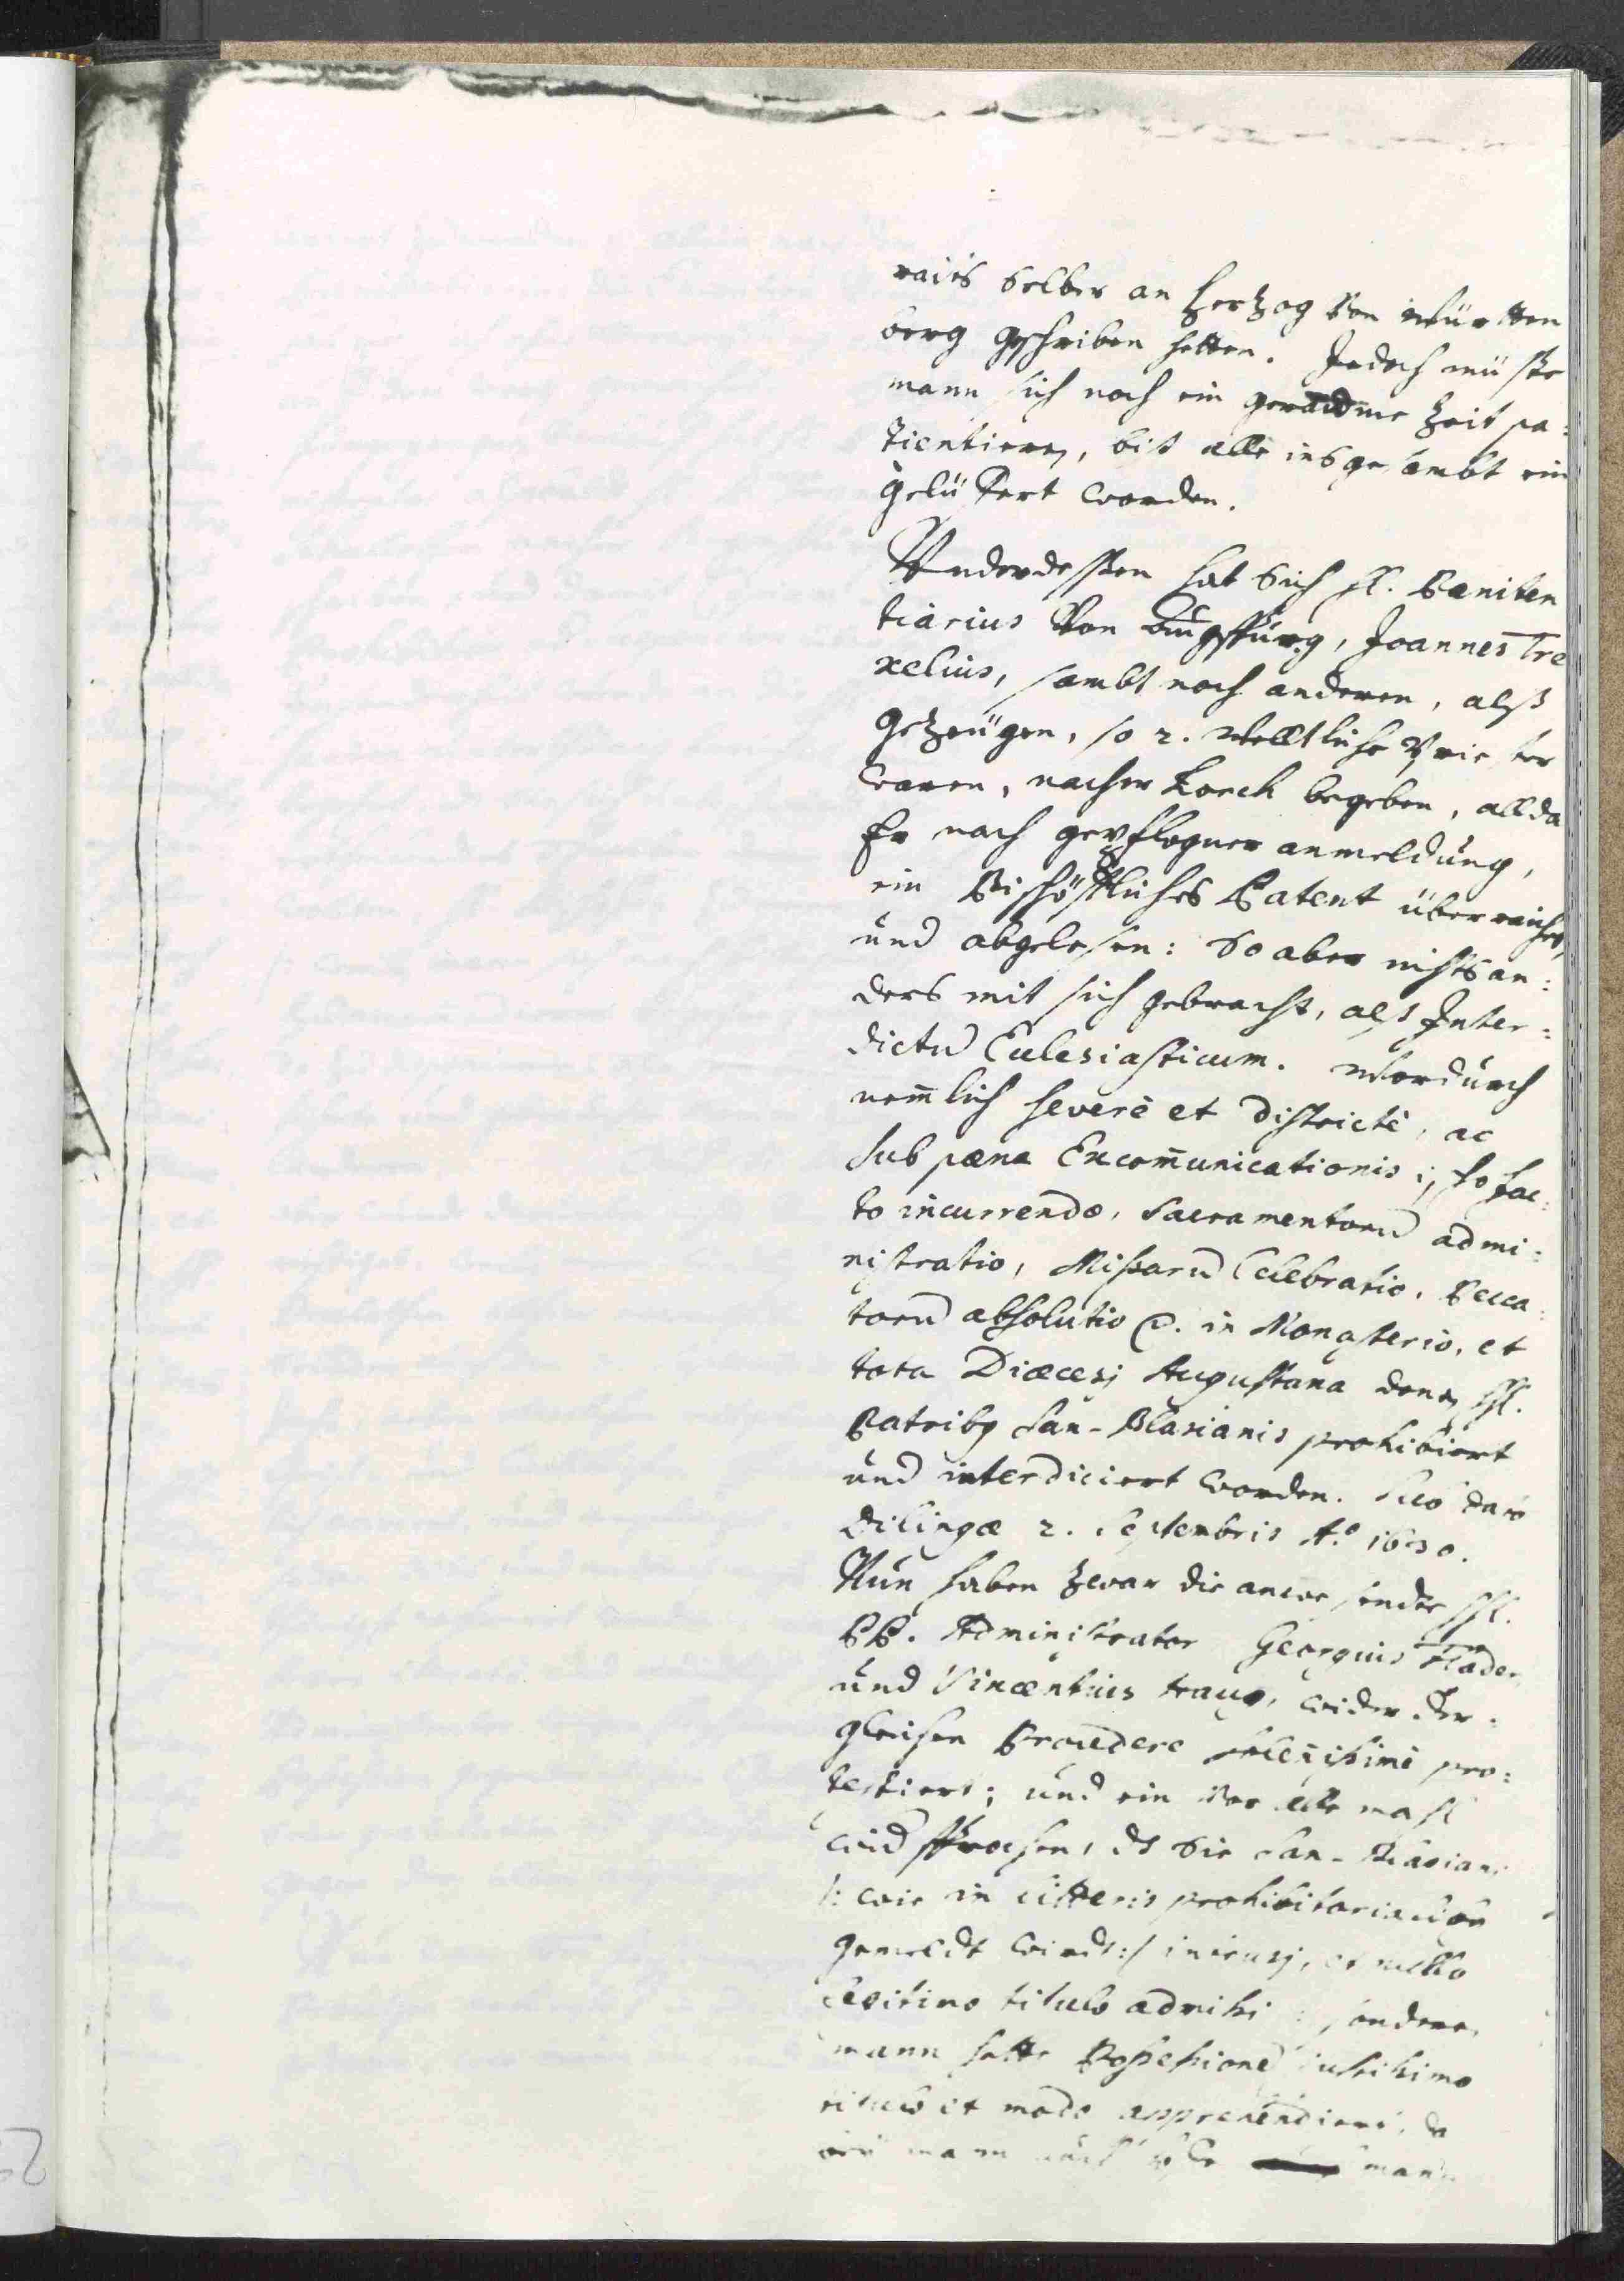 raits selber an Hertzog von Württen
berg geschriben hetten. Jedoch müste
mann sich noch ein geraume Zeit pa:
tientieren, bis alle insgesambt ein
gelüfert worden.
Underdessen hat sich H. Pœniten
tiarius von Augspurg, Joannes Tre
xelius, sambt noch anderen, alß
Gezeügen, so 2. weltliche Priester
waren, nacher Lorch begeben, allda
Er nach gepflogner anmeldung,
ein Bischöffliches Patent überreichet,
und abgelesen: So aber nichts an:
ders mit sich gebracht, alß Inter:
dictum Eclesiasticum. Wordurch
nemlich severè et districtè, ac
sub pœna Excom̄unicationis ipso fac:
to incurrendæ, Sacramentorum admi:
nistratio, Missarum Celebratio, Pecca:
torum absolutio &c. in Monasterio, et
tota Diœcesi Augustana denen HH.
Patribus San-Blasianis prohibiert
und interdiciert worden. sub dato
Dilingæ 2. Septembris Aº. 1630.
Nun haben zwar die anwesende HH.
PP. Administrator Georgius Flader,
und Vincentius wider der:
gleichen Procedere solenissimè pro:
testiert; und ein vor alle mahl
widsprochen, ds sie San-Blasiani
/: wie in litteris prohibitoria
gemeldt wirdt :/ intrusi, et nullo
legitimo titulo admissi; sondern
mann hette Possessionem iustissimo
titulo et modo apprehendiert, da
mann